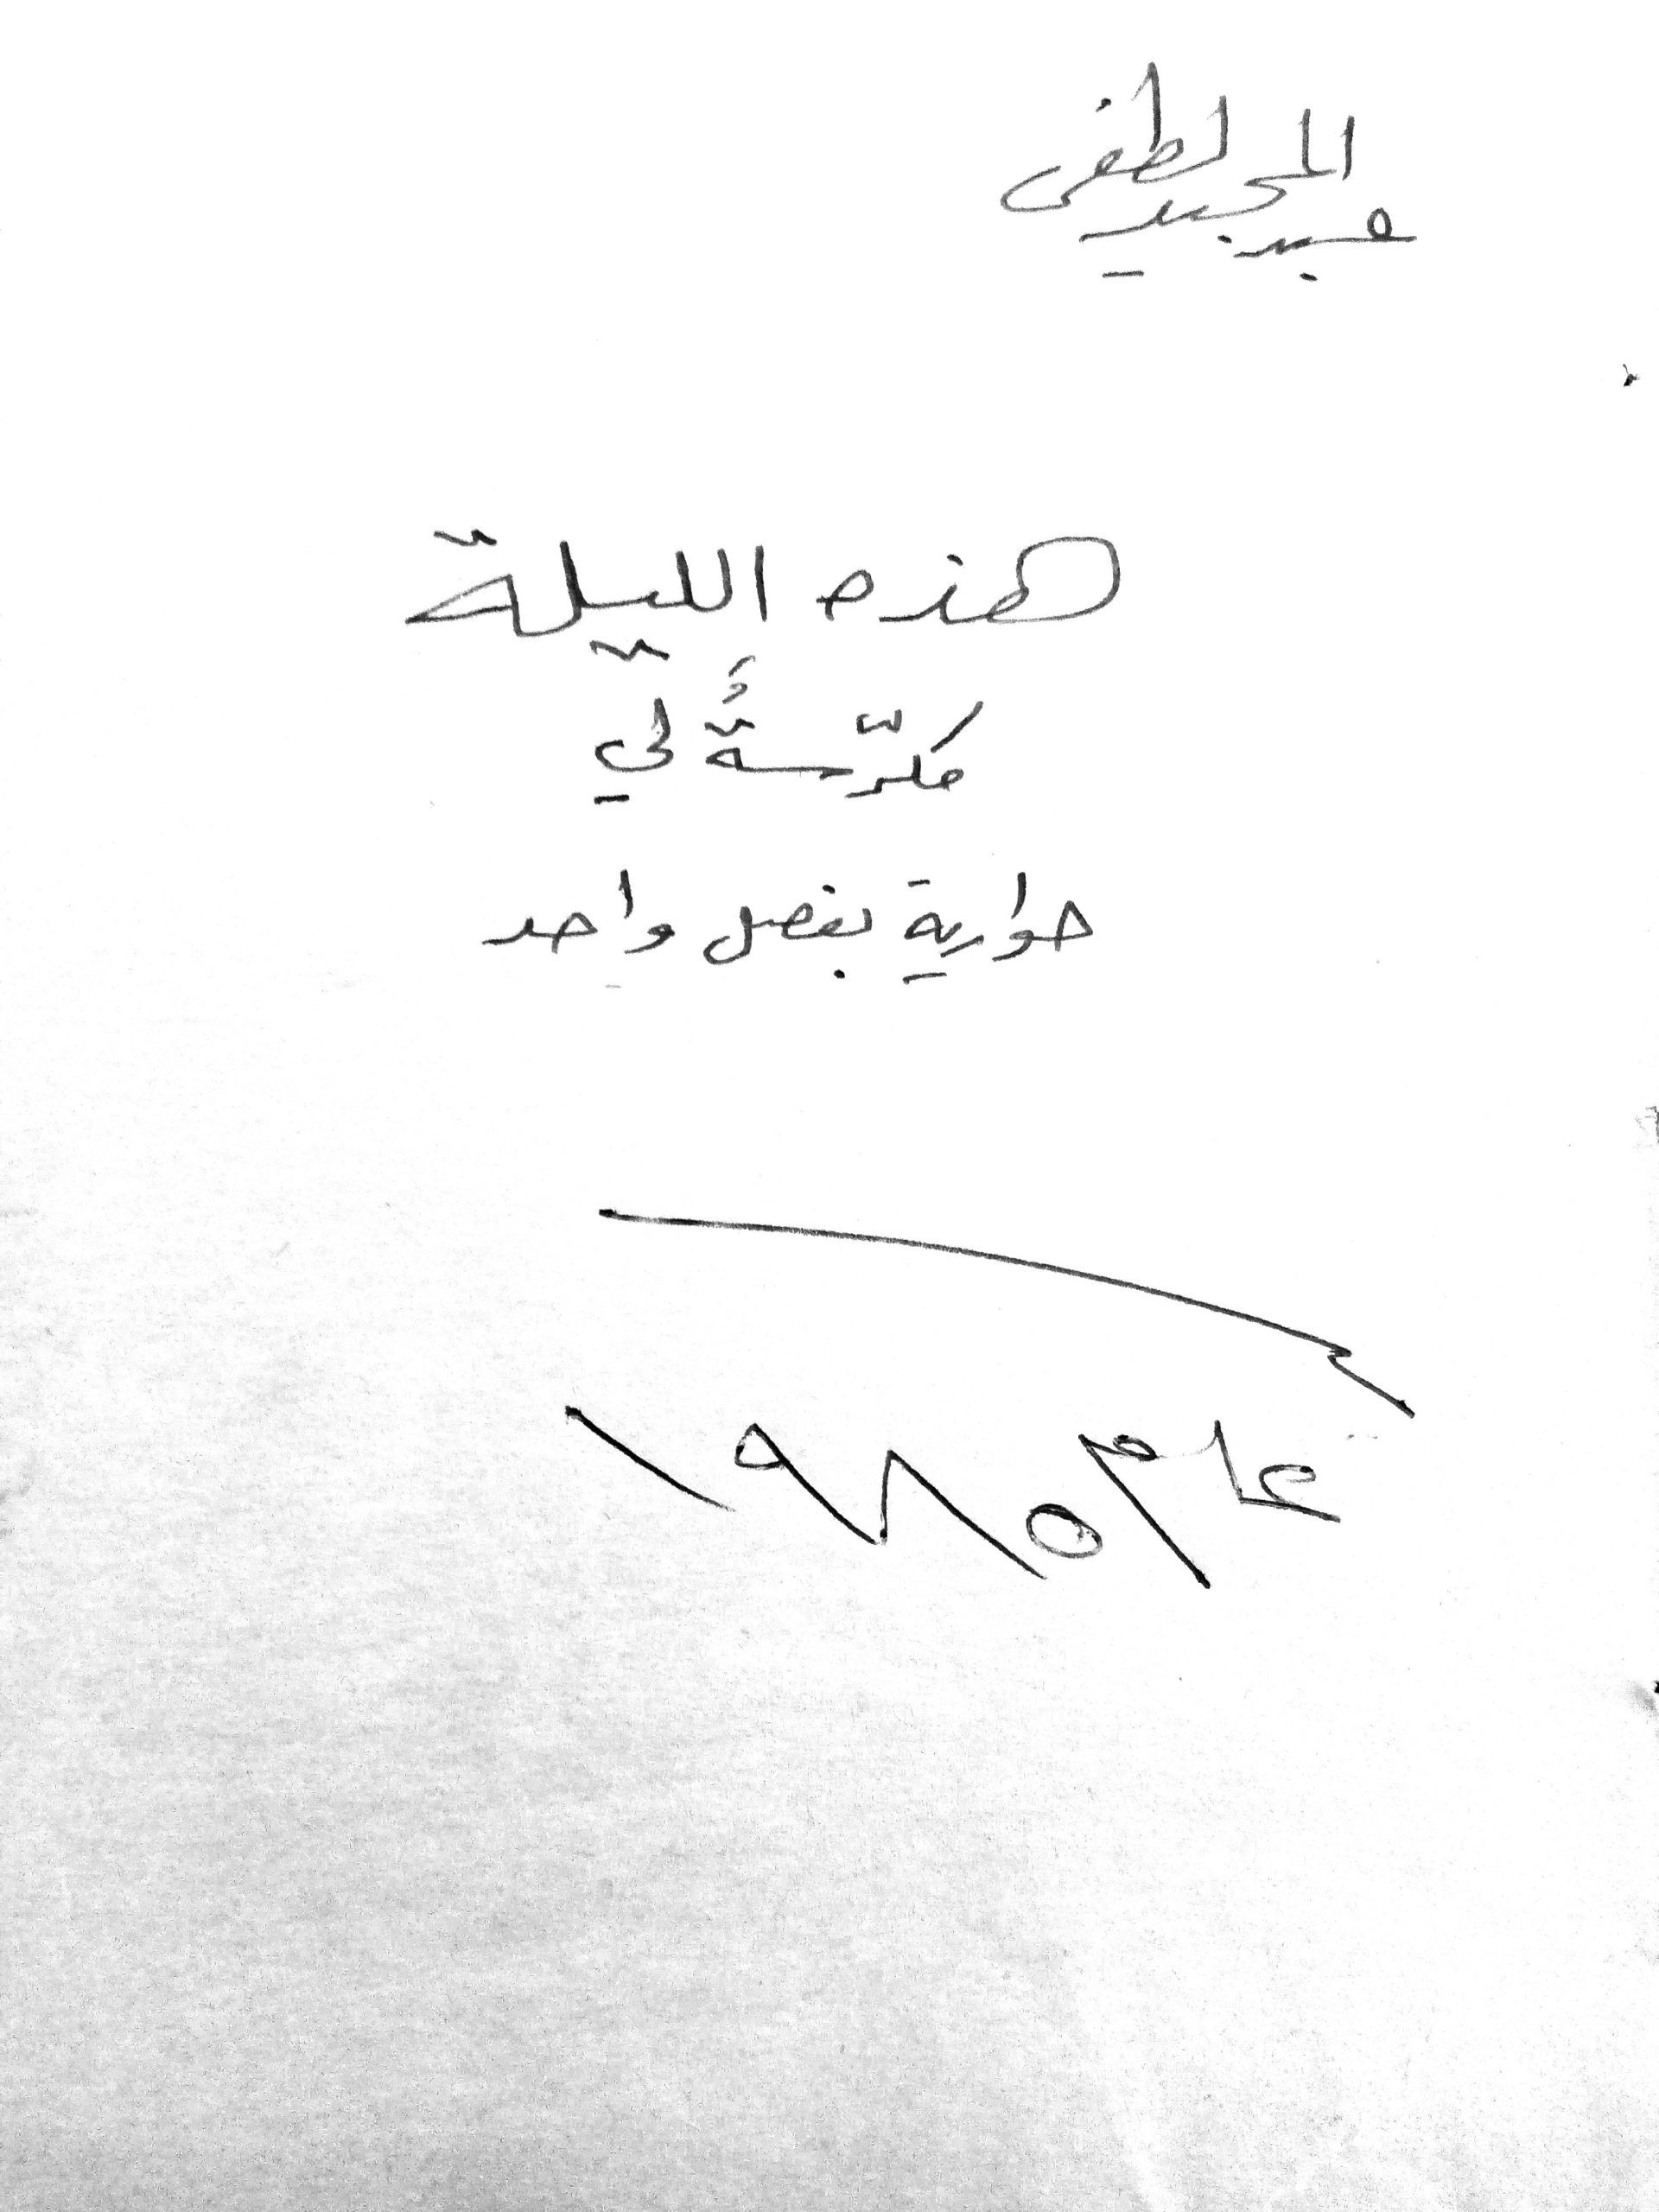 عبد المجيد لطفي
هذه الليلة
مكرّسةٌ لي
حوارية بفصل واحد
عام ١٩٨٥